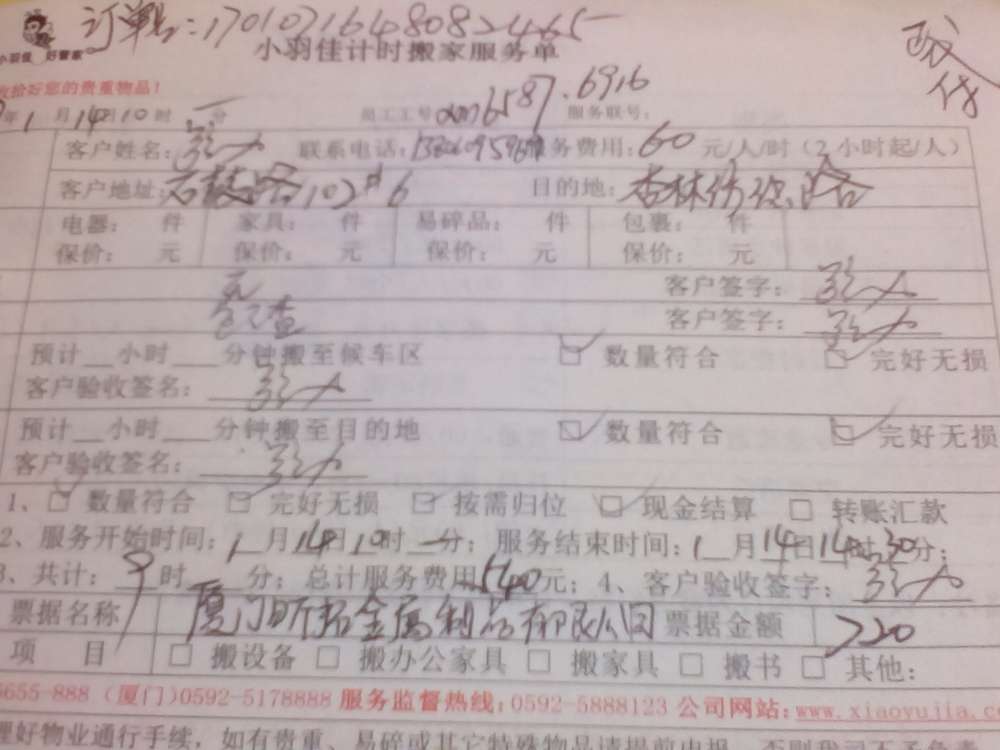 订单号：17010716480824655
小羽佳 好管家 小羽佳计时搬家服务单
收拾好您的贵重物品！
年1月14日10时一分 员工工号: 6587.6916 服务联号:
客户姓名: 联系电话: 务费用:60元/人/时(2小时起/人)
客户地址: 102#6 目的地: 杏林 路
电器: 件 家具: 件 易碎品: 件 包裹: 件
保价: 元 保价: 元 保价: 元 保价: 元
无 客户签字:
客户签字:
预计__小时___分钟搬至候车区 ☑ 数量符合 ☑ 完好无损
客户验收签名:
预计__小时___分钟搬至目的地 ☑ 数量符合 ☑ 完好无损
客户验收签名:
1、☑ 数量符合 ☑ 完好无损 ☑ 按需归位 ☑ 现金结算 □ 转账汇款
2、服务开始时间:1月14日10时一分; 服务结束时间:1月14日14时30分;
3、共计:9时 分; 总计服务费用540元; 4、客户验收签字:
票据名称 厦门昕拓金属制品有限公司 票据金额 720
项目 □ 搬设备 □ 搬办公家具 □ 搬家具 □ 搬书 □ 其他:
5655-888 (厦门)0592-5178888 服务监督热线:0592-5888123 公司网站:www.xiaoyujia.c
理好物业通行手续，如有贵重、易碎或其它特殊物品请提前申报，否则我司不予负责